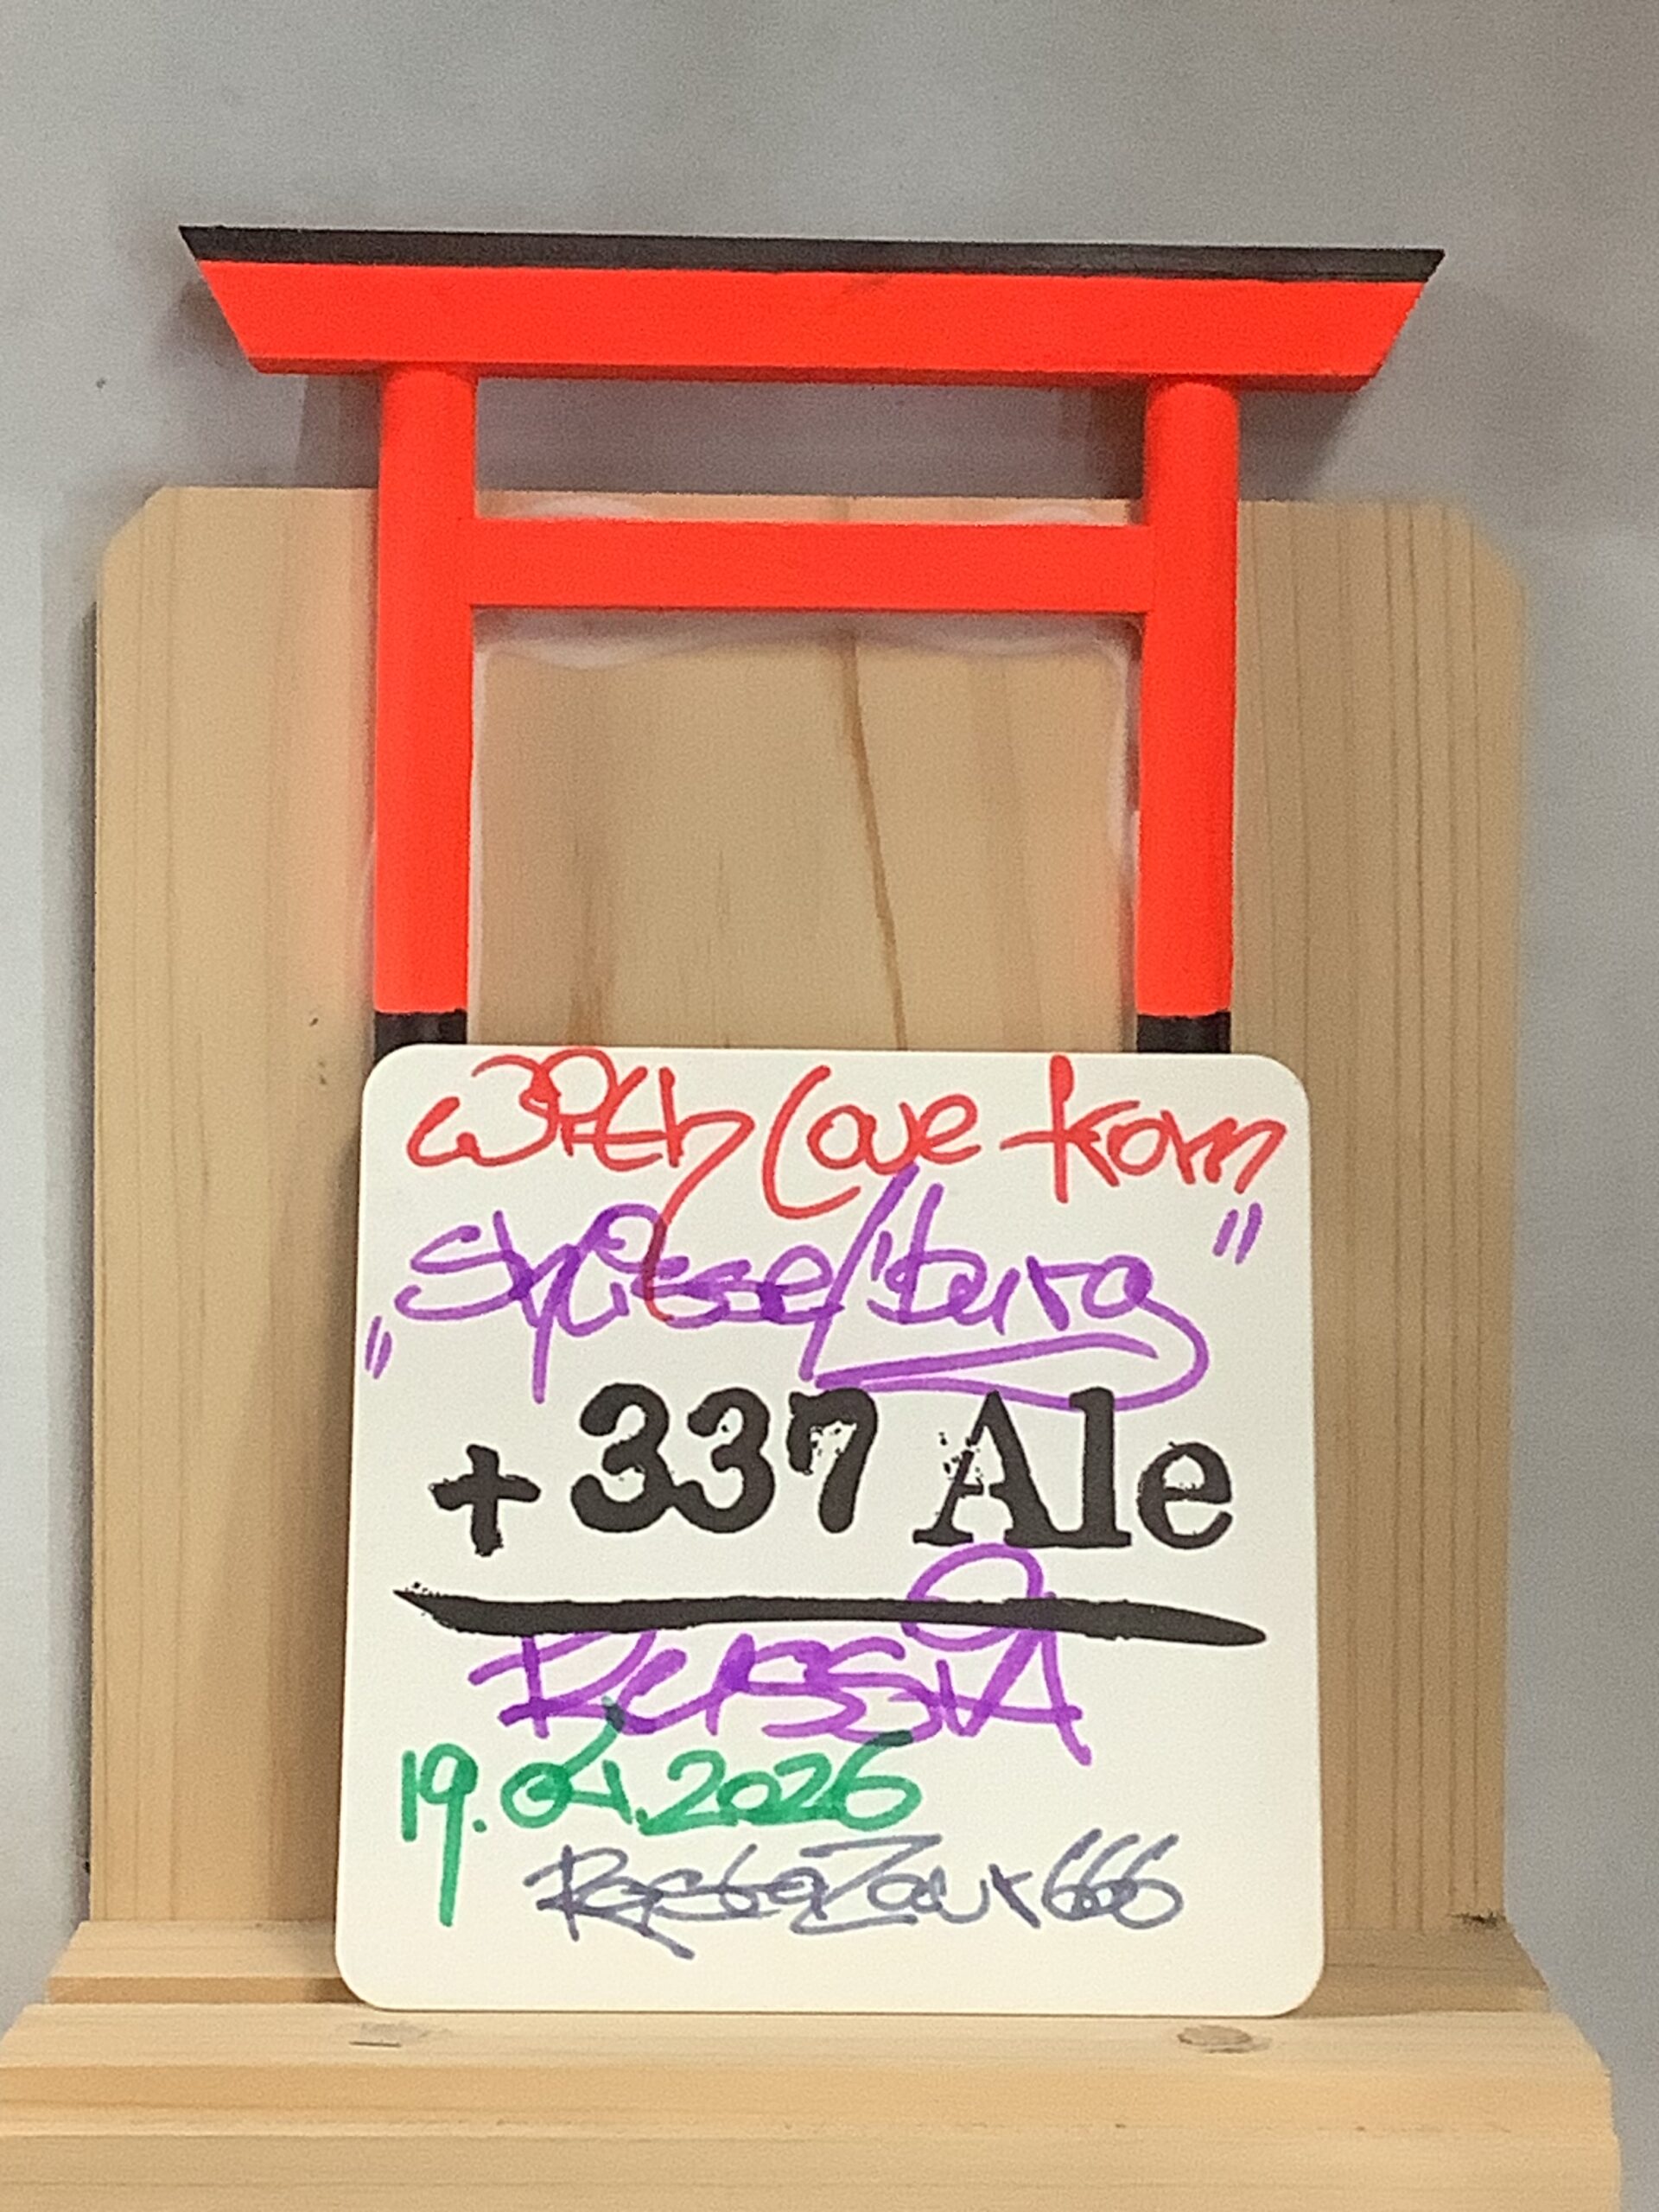 With Love from
„Shlisselburg"
+337 Ale
RUSSIA
19.04.2026
RastaZaur666